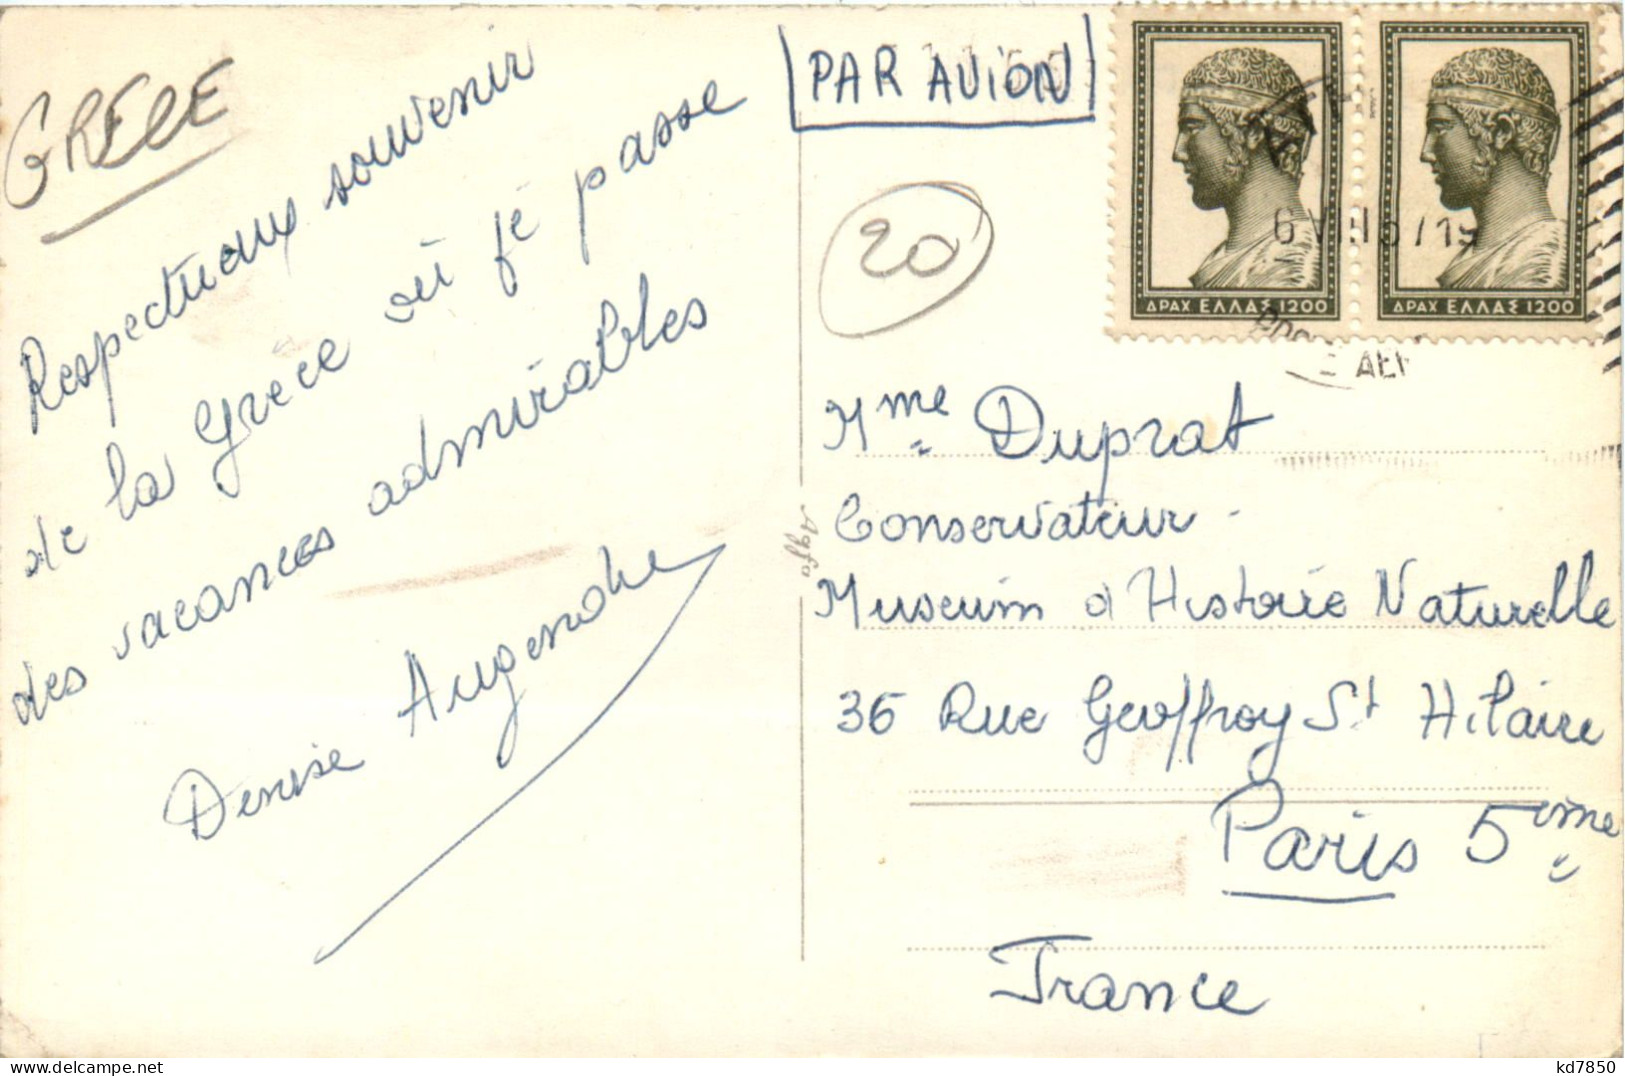 GRECE
Respectueux souvenir
de la Grèce où je passe
des vacances admirables
Denise
PAR AVION
20
ΔΡΑΧ ΕΛΛΑΣ 1200
ΔΡΑΧ ΕΛΛΑΣ 1200
Mme Duprat
Conservateur
Museum d'Histoire Naturelle
36 Rue Geoffroy St Hilaire
Paris 5ème
France
Agfa
kd7850